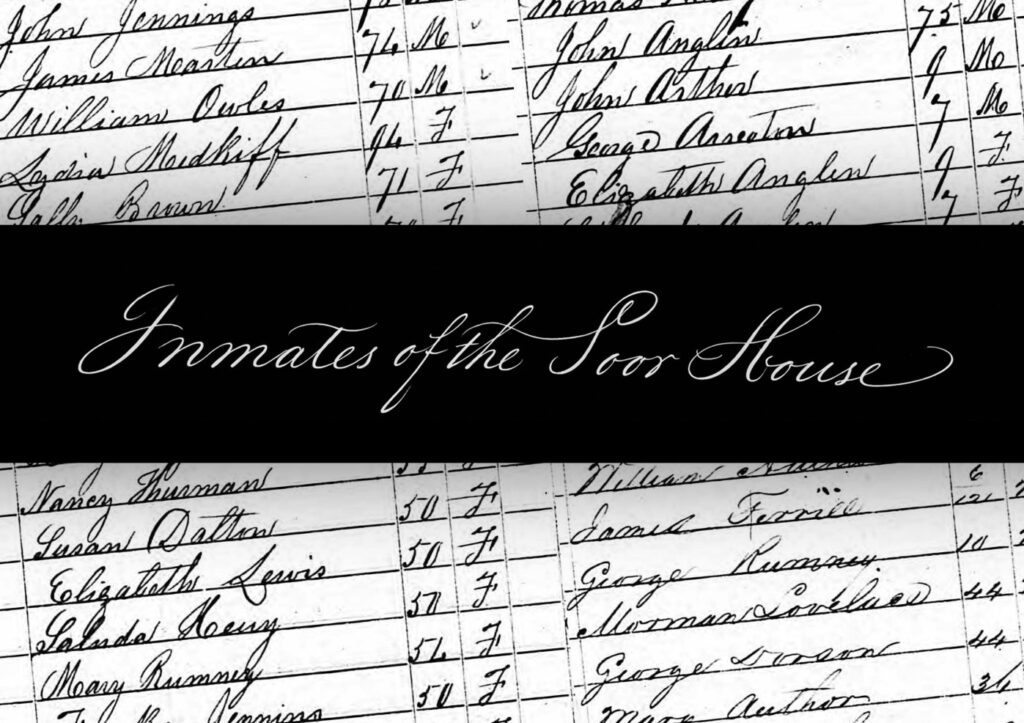 John Jennings
James Marten 74 M
William Owles 70 M
Lydia Medkiff 94 F
Sally Brown 71 F
Thomas
John Anglin 75 M
John Arthur 9 M
George Arreaton 7 M
Elizabeth Anglin 9 F
7 F
Inmates of the Poor House
Nancy Thurman
Susan Dalton 50 F
Elizabeth Lewis 50 F
Salinda Henry 50 F
Mary Rumney 51 F
Jennins 50 F
William
James Ferrill 6/12
George Rumney 10
Morman Lovelace 44
George Dorson 44
Mary Author 36